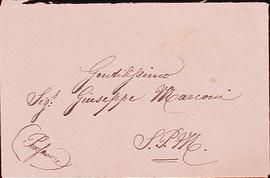 Gentilissimo
Sig.r Giuseppe Marconi
S. P. M.